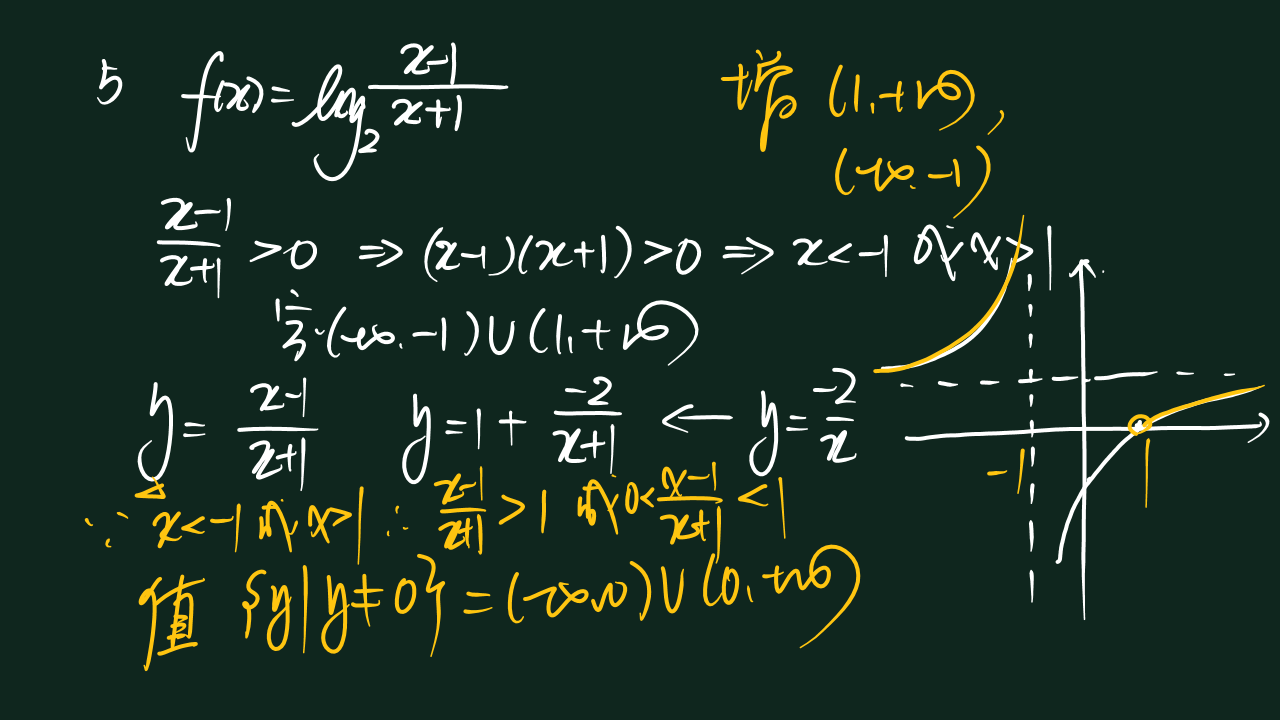 5 f(x)=log₂ (x-1)/(x+1)
增 (1,+∞),
(-∞,-1)
(x-1)/(x+1) >0 ⇒ (x-1)(x+1)>0 ⇒ x<-1 或 x>1
定:(-∞,-1)∪(1,+∞)
y= (x-1)/(x+1) y=1+ (-2)/(x+1) ← y= (-2)/x
-1 1
∵ x<-1 或 x>1 ∴ (x-1)/(x+1) >1 或 0< (x-1)/(x+1) <1
值 {y|y≠0}=(-∞,0)∪(0,+∞)